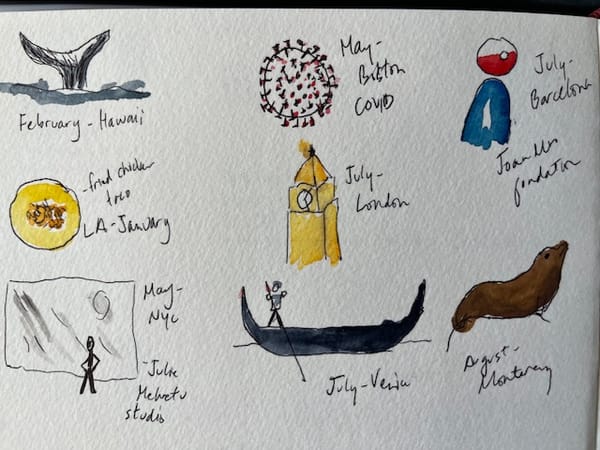 February - Hawaii
May -
Boston
COVID
July -
Barcelona
Joan Miro
fondation
- fried chicken
taco
LA - January
July -
London
May -
NYC
- Julie
Mehretu
studio
July - Venice
August -
Monterey